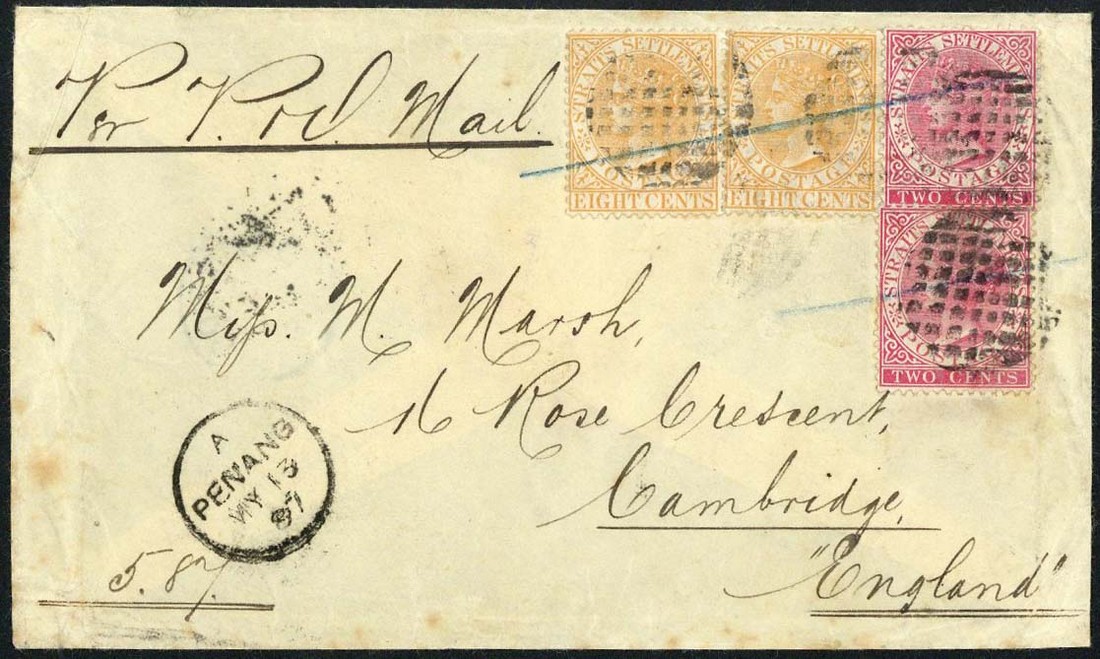 Per P. and O. Mail.
STRAITS SETTLEMENTS
POSTAGE
EIGHT CENTS
STRAITS SETTLEMENTS
POSTAGE
EIGHT CENTS
STRAITS SETTLEMENTS
POSTAGE
TWO CENTS
STRAITS SETTLEMENTS
POSTAGE
TWO CENTS
Miss. M. Marsh,
16 Rose Crescent,
Cambridge,
"England"
A
PENANG
MY 13
87
5.87.